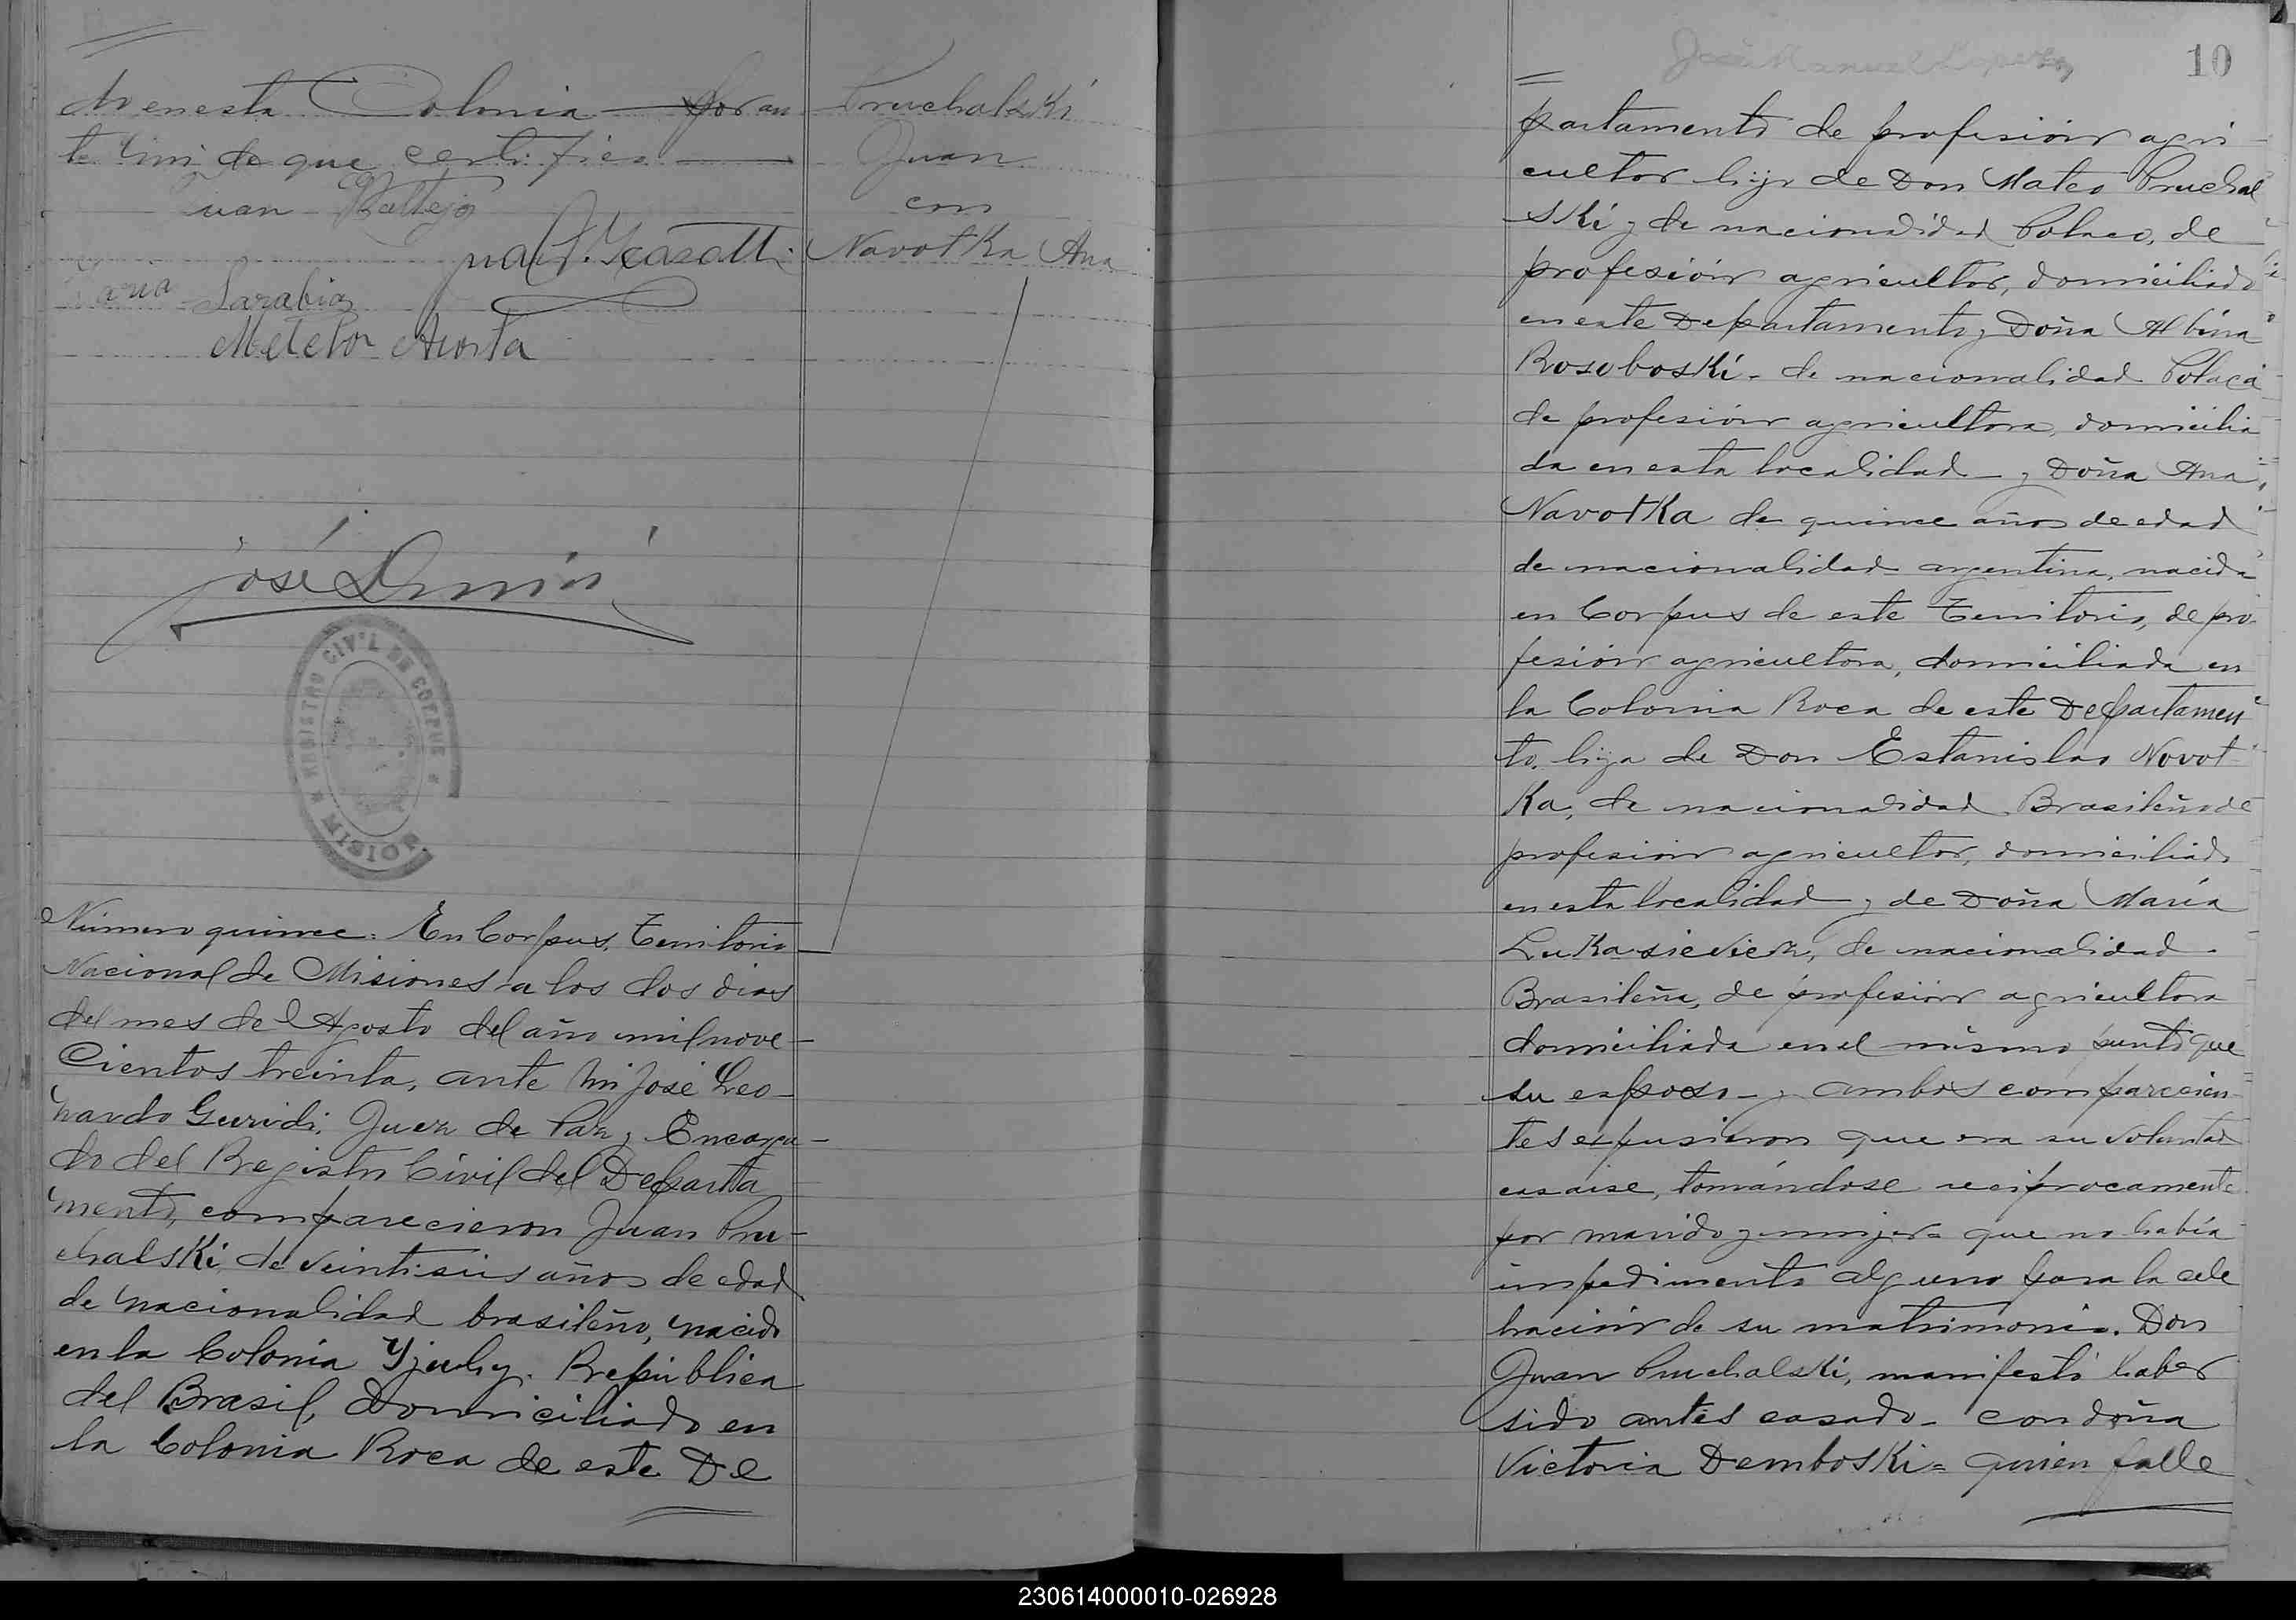 do en esta Colonia — por an
te mi de que certifico —
Juan Vallejo
Maria Sarabia
Metelor Acosta
José
REGISTRO CIVIL DE CORPUS
MISIONES
Pruchalski
Juan
con
Navotka Ana
Número quince. En Corpus, Territorio
Nacional de Misiones a los dos dias
del mes de Agosto del año mil nove-
cientos treinta, ante mi José Leo-
nardo Guridi, Juez de Paz y Encarga-
do del Registro Civil del Departa
mento, comparecieron Juan Pru-
chalski de veintiseis años de edad
de nacionalidad brasileño, nacido
en la Colonia Yjuhy. República
del Brasil, domiciliado en
la Colonia Roca de este De
10
partamento de profesión agri-
cultor hijo de Don Mateo Pruchal
ski y de nacionalidad Polaco, de
profesión agricultor, domiciliado
en este Departamento y Doña Albina
Rosoboski - de nacionalidad Polaca
de profesión agricultora, domicilia
da en esta localidad - y Doña Ana
Navotka de quince años de edad
de nacionalidad argentina, nacida
en Corpus de este Territorio, de pro
fesión agricultora, domiciliada en
la Colonia Roca de este Departamen
to. hija de Don Estanislao Novot
ka, de nacionalidad Brasileño de
profesión agricultor, domiciliado
en esta localidad y de Doña María
Lukasievicz, de nacionalidad
Brasileña, de profesión agricultora
domiciliada en el mismo punto que
su esposo - y ambos comparecien
tes expusieron que era su voluntad
casarse, tomándose reciprocamente
por marido y mujer = que no había
impedimento alguno para la cele
bración de su matrimonio. Don
Juan Pruchalski, manifestó haber
sido antes casado - con doña
Victoria Demboski = quien falle
230614000010-026928